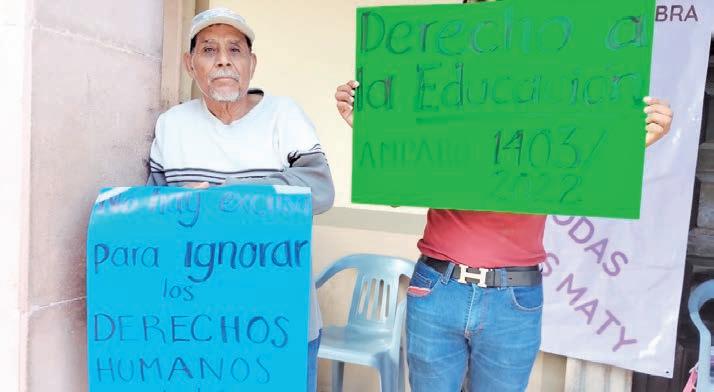 No hay excusa
para ignorar
los
DERECHOS
HUMANOS
Derecho a
la Educación
AMPARO 1403/
2022
BRA
ODAS
S MATY